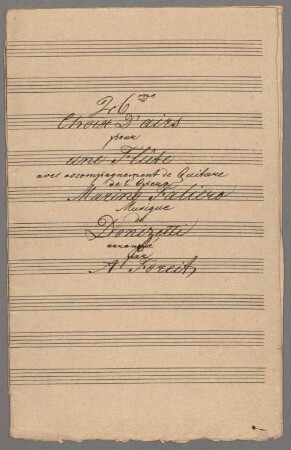 26me
Choix D'airs
pour
une Flûte
avec accompagnement de Guitare
de l'Opera
Marino Faliero
Musique
de
Donizetti
arrangée
par
A Foreit